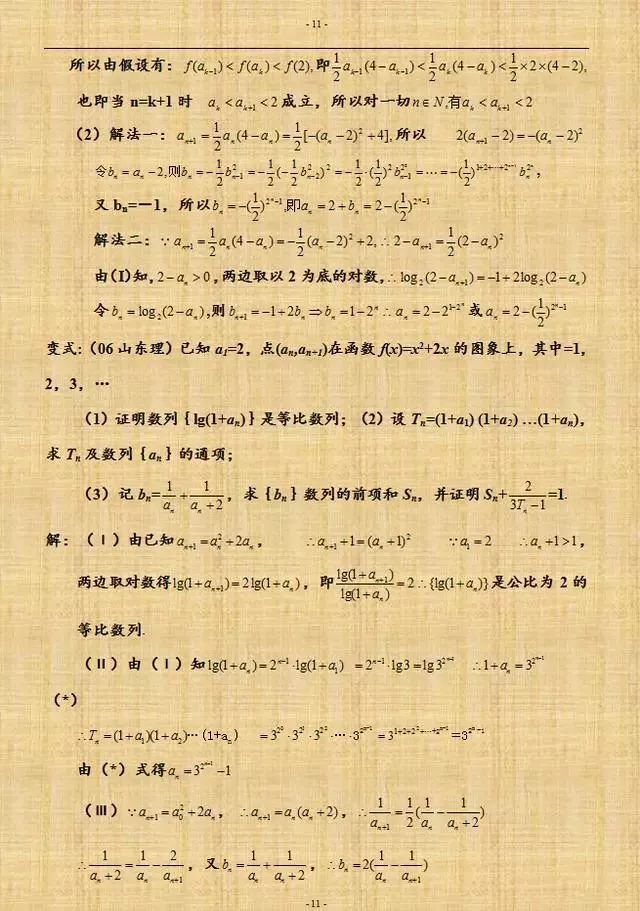 - 11 -
所以由假设有：f(a_{k-1})<f(a_k)<f(2),即\frac{1}{2}a_{k-1}(4-a_{k-1})<\frac{1}{2}a_k(4-a_k)<\frac{1}{2}×2×(4-2),
也即当 n=k+1 时 a_k<a_{k+1}<2成立，所以对一切n∈N,有a_k<a_{k+1}<2
（2）解法一：a_{n+1}=\frac{1}{2}a_n(4-a_n)=\frac{1}{2}[-(a_n-2)^2+4],所以 2(a_{n+1}-2)=-(a_n-2)^2
令b_n=a_n-2,则b_n=-\frac{1}{2}b_{n-1}^2=-\frac{1}{2}(-\frac{1}{2}b_{n-2}^2)^2=-\frac{1}{2}·(\frac{1}{2})^2b_{n-1}^{2^2}=⋯=-(\frac{1}{2})^{1+2+⋯+2^{n-1}}b_n^{2^n}，
又 b_n=－1，所以b_n=-(\frac{1}{2})^{2^n-1},即a_n=2+b_n=2-(\frac{1}{2})^{2^n-1}
解法二：∵a_{n+1}=\frac{1}{2}a_n(4-a_n)=-\frac{1}{2}(a_n-2)^2+2,∴2-a_{n+1}=\frac{1}{2}(2-a_n)^2
由(I)知，2-a_n>0，两边取以 2 为底的对数，∴log_2(2-a_{n+1})=-1+2log_2(2-a_n)
令b_n=log_2(2-a_n),则b_{n+1}=-1+2b_n⇒b_n=1-2^n∴a_n=2-2^{1-2^n}或a_n=2-(\frac{1}{2})^{2^n-1}
变式:（06 山东理）已知 a_1=2，点(a_n,a_{n+1})在函数 f(x)=x^2+2x 的图象上，其中=1，
2，3，…
（1）证明数列｛lg(1+a_n)｝是等比数列；（2）设 T_n=(1+a_1) (1+a_2) …(1+a_n)，
求 T_n 及数列｛a_n｝的通项；
（3）记 b_n=\frac{1}{a_n}+\frac{1}{a_n+2}，求｛b_n｝数列的前项和 S_n，并证明 S_n+\frac{2}{3T_n-1}=1.
解:（Ⅰ）由已知a_{n+1}=a_n^2+2a_n， ∴a_{n+1}+1=(a_n+1)^2 ∵a_1=2 ∴a_n+1>1，
两边取对数得lg(1+a_{n+1})=2lg(1+a_n)，即\frac{lg(1+a_{n+1})}{lg(1+a_n)}=2∴{lg(1+a_n)}是公比为 2 的
等比数列.
（Ⅱ）由（Ⅰ）知lg(1+a_n)=2^{n-1}·lg(1+a_1) =2^{n-1}·lg3=lg3^{2^{n-1}} ∴1+a_n=3^{2^{n-1}}
（*）
∴T_n=(1+a_1)(1+a_2)…(1+a_n) =3^{2^0}·3^{2^1}·3^{2^2}·⋯·3^{2^{n-1}}=3^{1+2+2^2+⋯+2^{n-1}}=3^{2^n-1}
由（*）式得a_n=3^{2^{n-1}}-1
（Ⅲ）∵a_{n+1}=a_0^2+2a_n，∴a_{n+1}=a_n(a_n+2)，∴\frac{1}{a_{n+1}}=\frac{1}{2}(\frac{1}{a_n}-\frac{1}{a_n+2})
∴\frac{1}{a_n+2}=\frac{1}{a_n}-\frac{2}{a_{n+1}}，又b_n=\frac{1}{a_n}+\frac{1}{a_n+2}，∴b_n=2(\frac{1}{a_n}-\frac{1}{a_{n+1}})
- 11 -